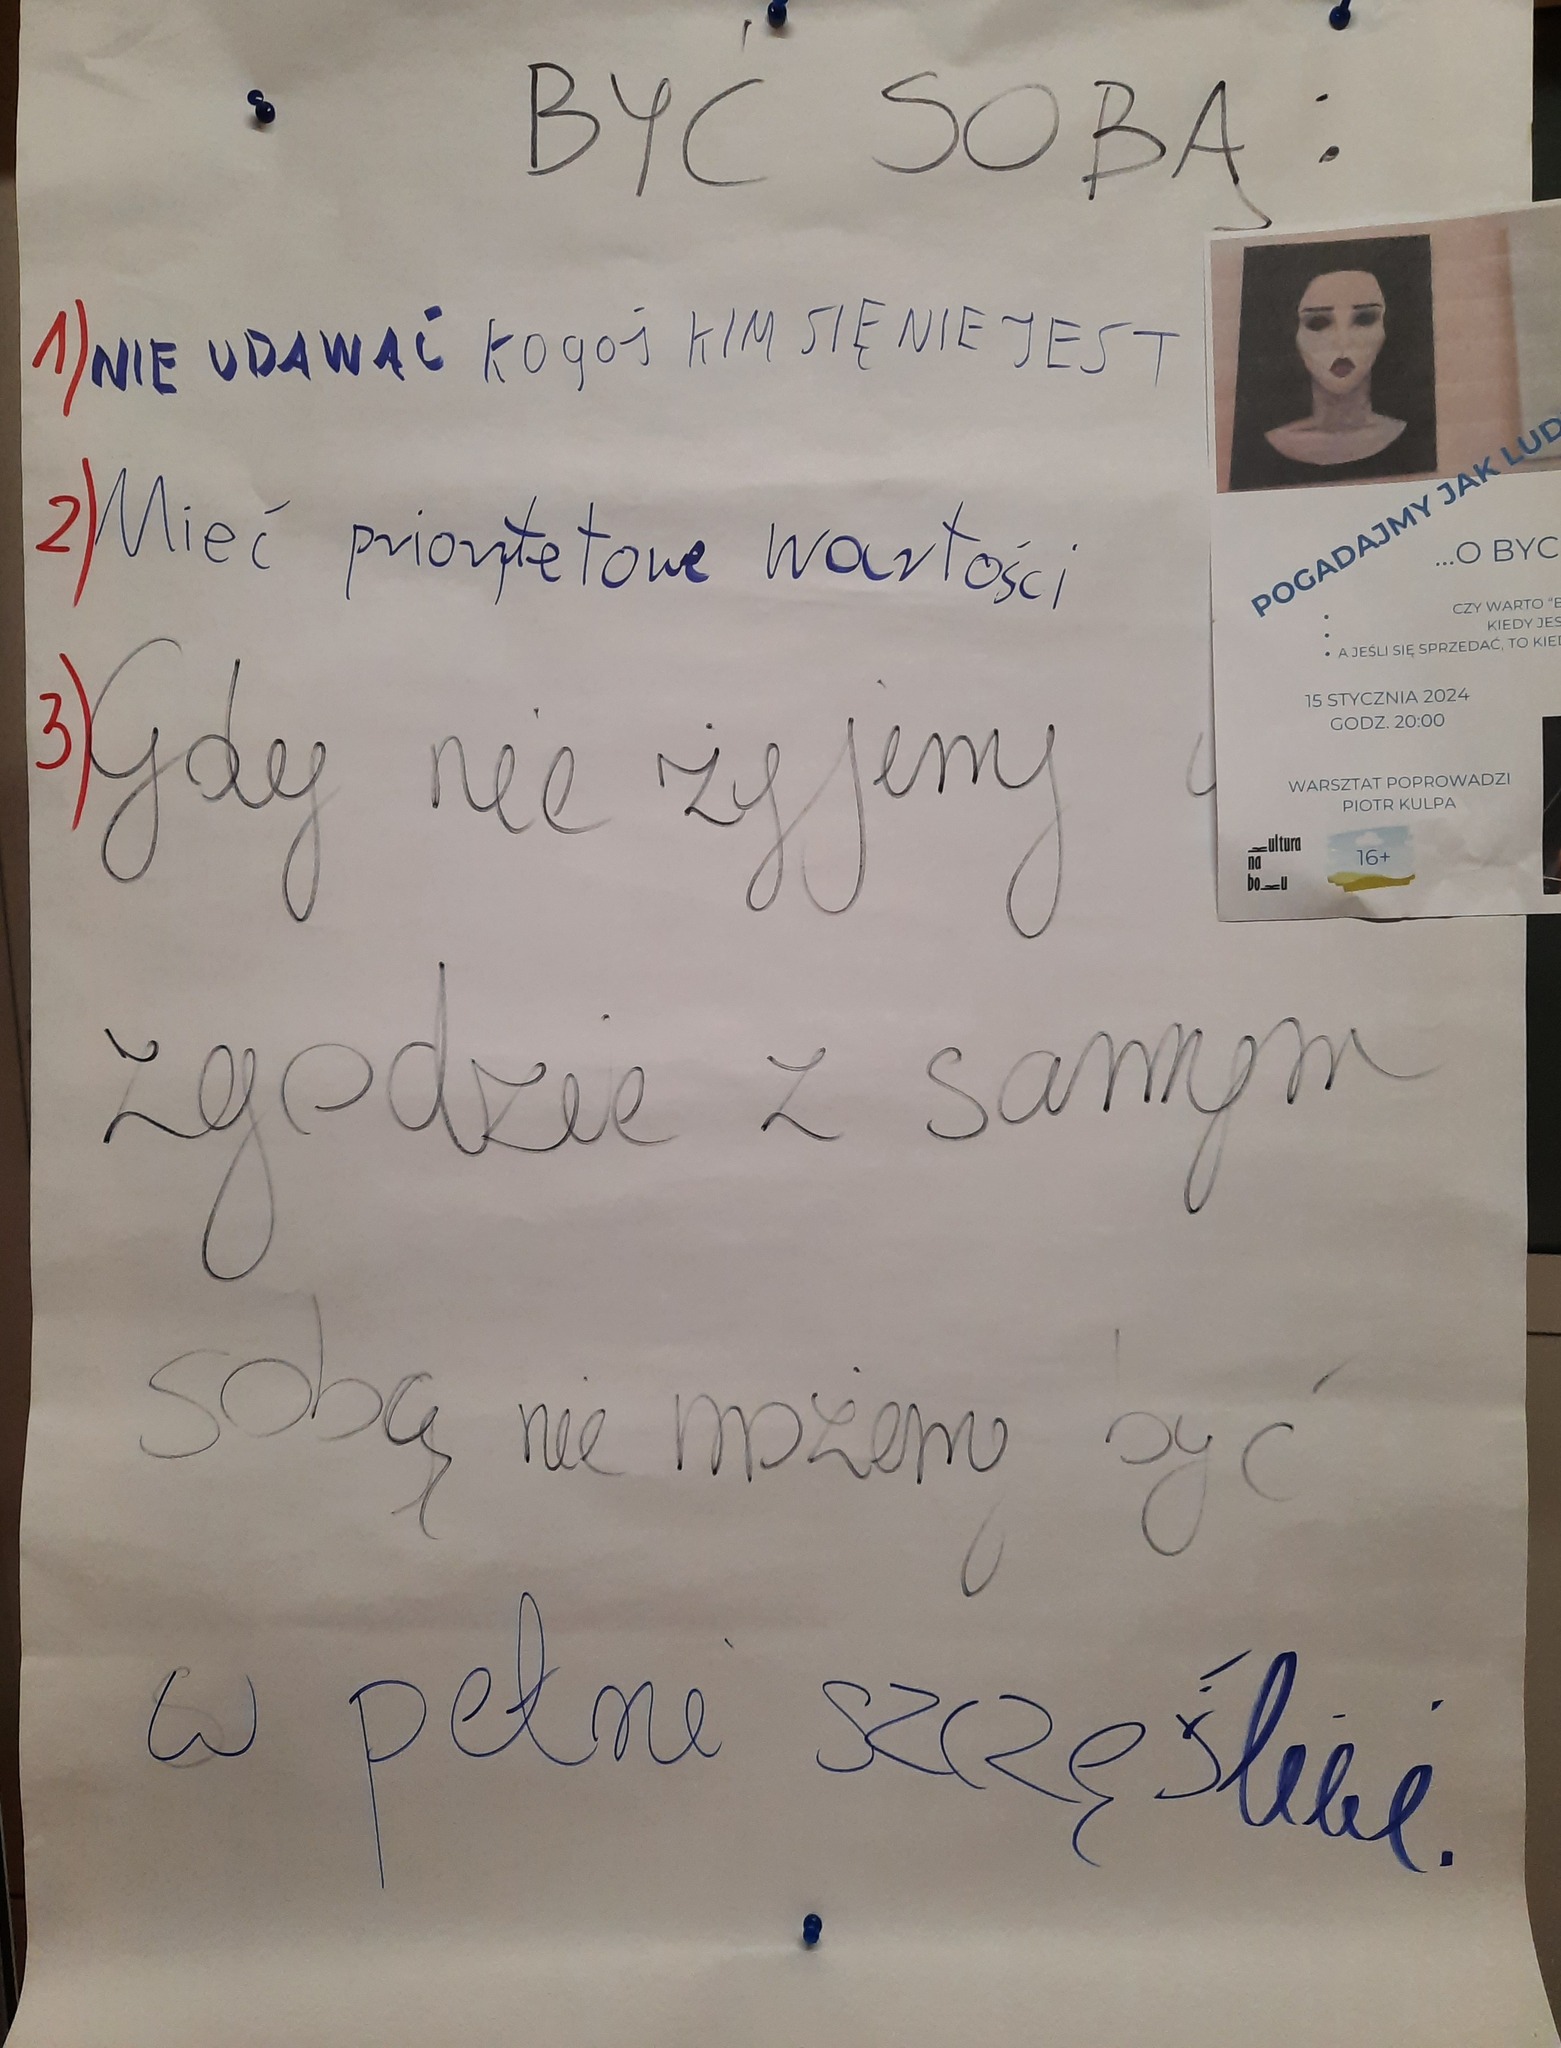 BYĆ SOBĄ:
1) NIE UDAWAĆ KOGOŚ KIM SIĘ NIE JEST
2) Mieć priorytetowe wartości
3) Gdy nie żyjemy
zgodzie z samym
sobą nie możemy być
w pełni szczęśliwi.
POGADAJMY JAK LUD
...O BYC
CZY WARTO "B
KIEDY JES
• A JEŚLI SIĘ SPRZEDAĆ, TO KIED
15 STYCZNIA 2024
GODZ. 20:00
WARSZTAT POPROWADZI
PIOTR KULPA
kultura
na
boku
16+